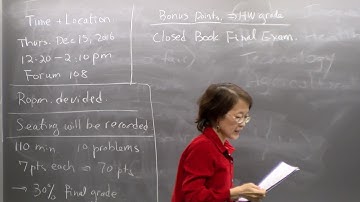 Time + Location
Thurs. Dec 15, 2016
12:20 - 2:10 pm
Forum 108
Room devided.
Seating will be recorded
110 min. 10 problems
7pts each ⇒ 70 pts
→ 30% final grade
Bonus Points ⇒ HW grade
Closed Book Final Exam.